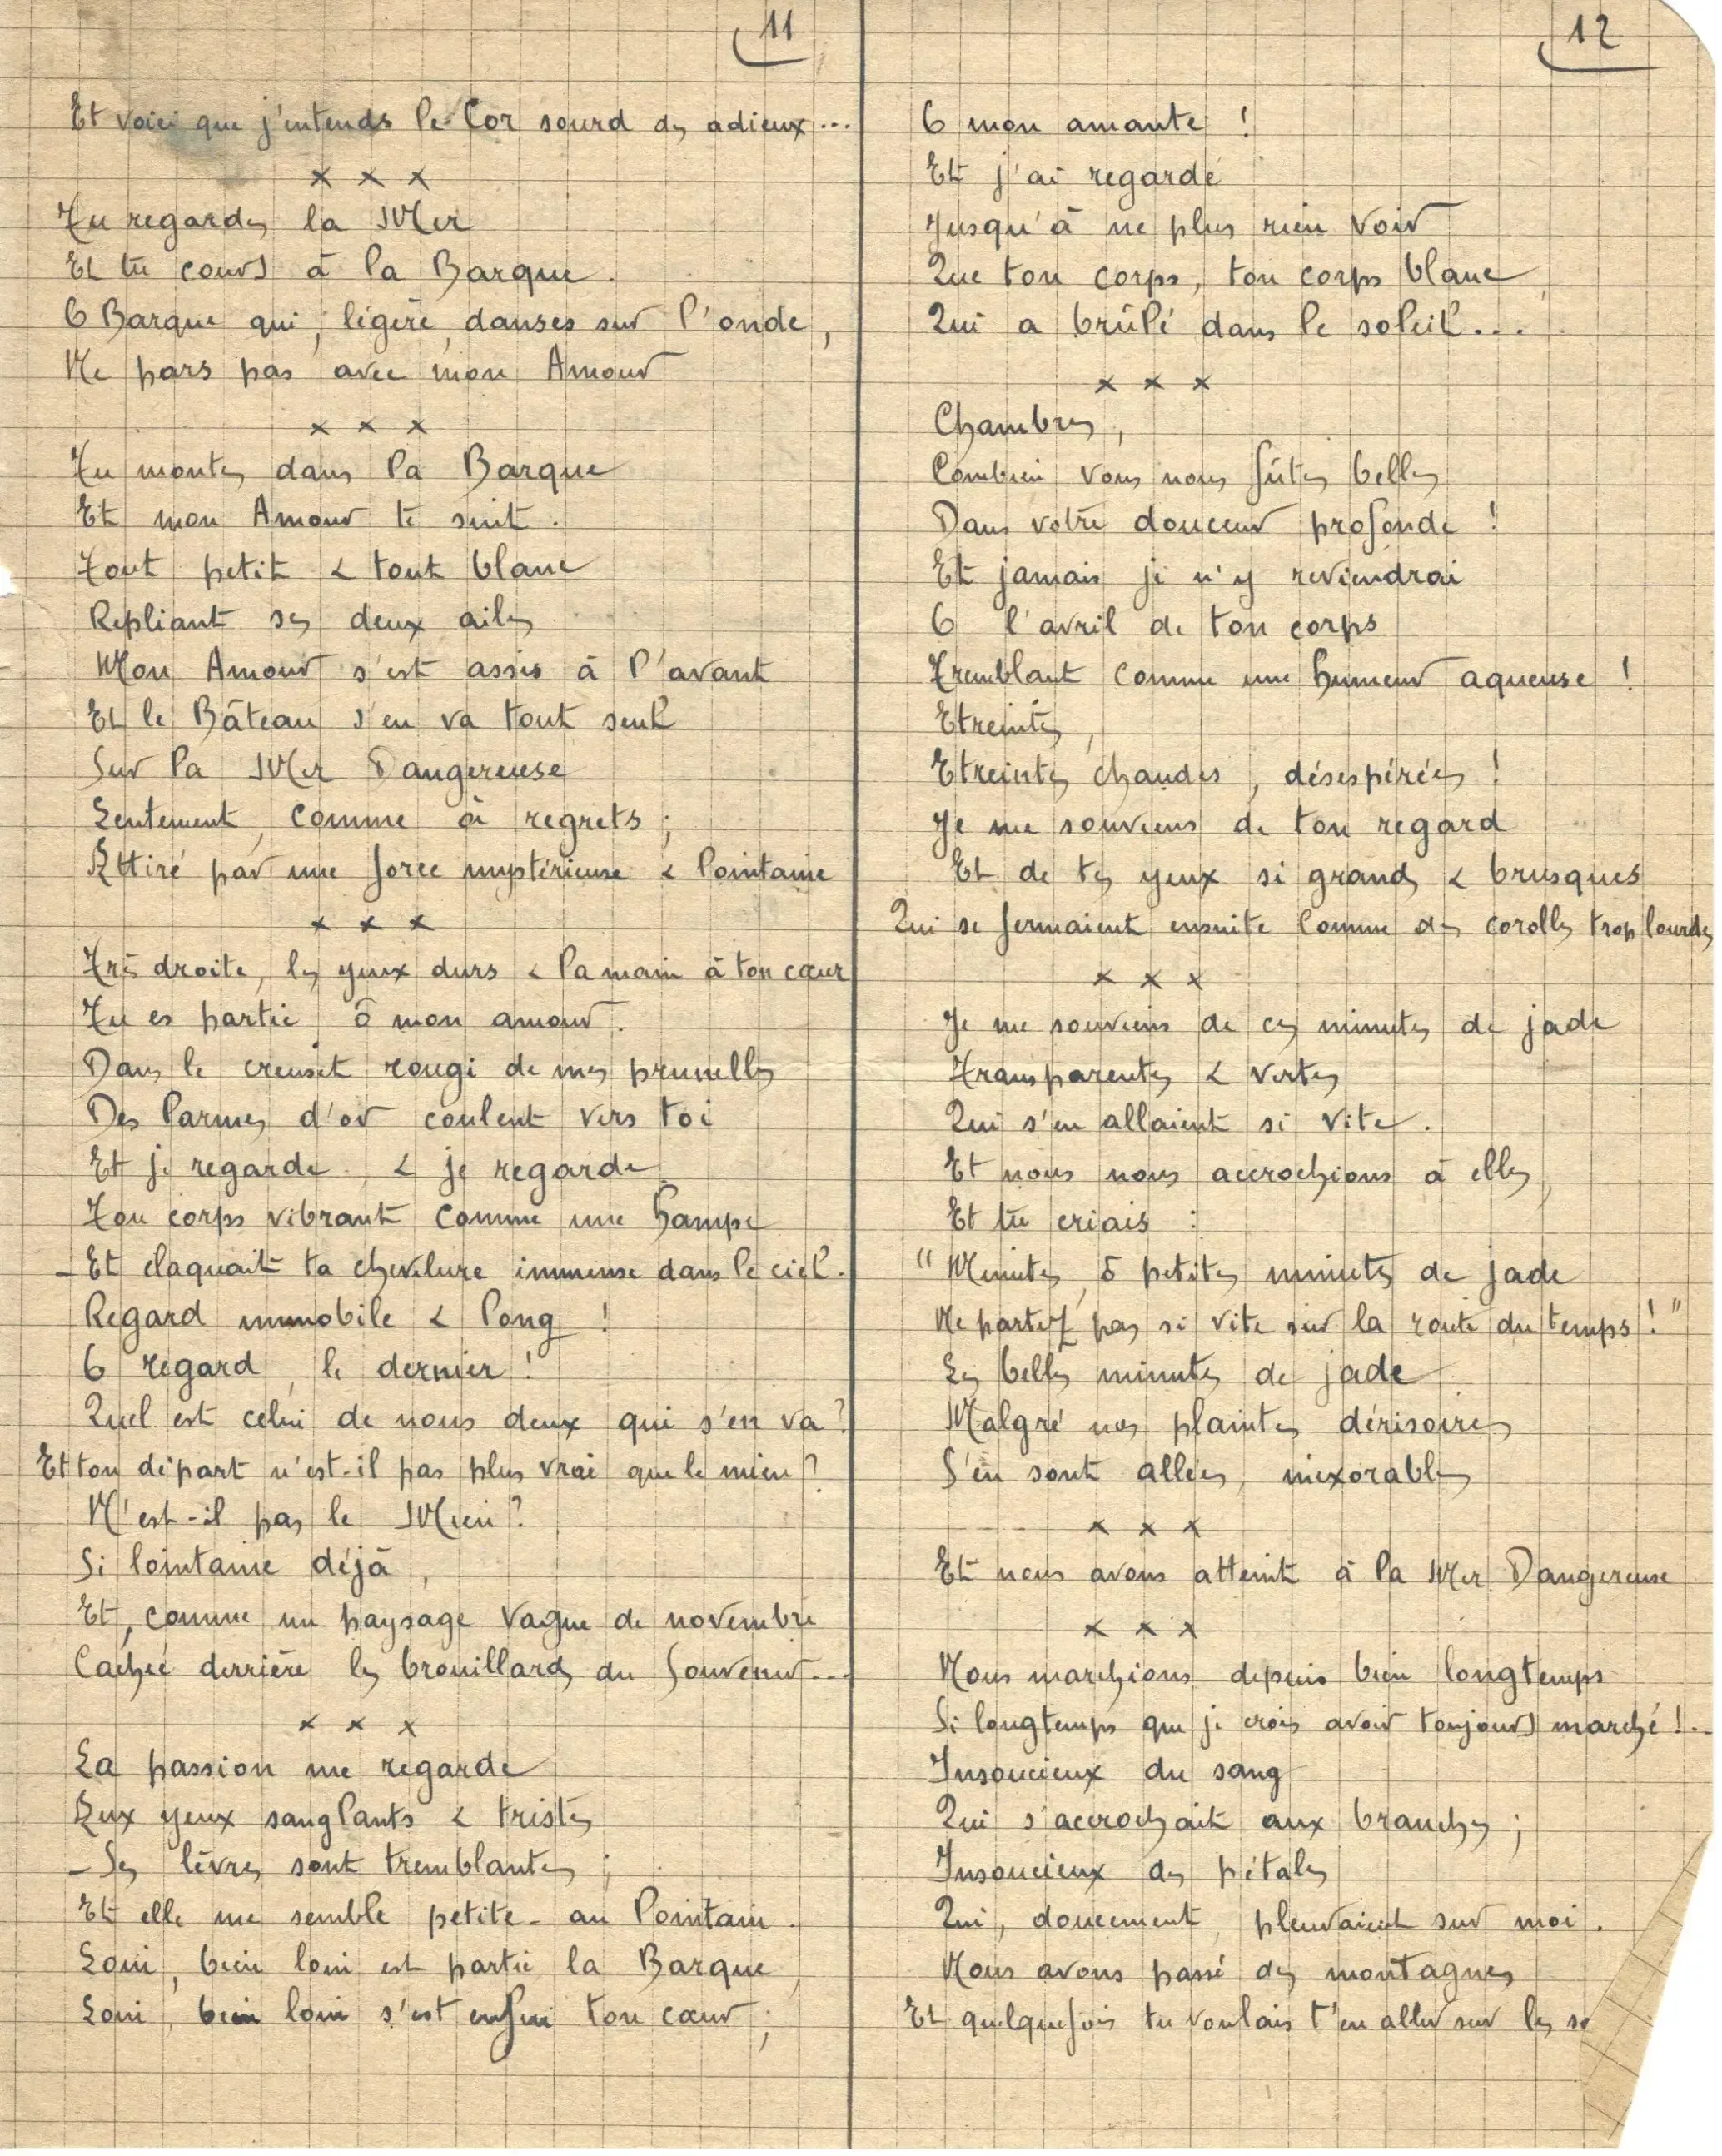 11
Et voici que j'entends le Cor sourd des adieux...
x x x
Tu regardes la Mer
Et tu cours à la Barque.
O Barque qui, légère, danses sur l'onde,
Ne pars pas avec mon Amour
x x x
Tu montes dans la Barque
Et mon Amour te suit.
Tout petit & tout blanc
Repliant ses deux ailes
Mon Amour s'est assis à l'avant
Et le Bâteau s'en va tout seul
Sur la Mer Dangereuse
Lentement, comme à regrets ;
Attiré par une force mystérieuse & lointaine
x x x
Très droite, les yeux durs & la main à ton cœur
Tu es partie ô mon amour.
Dans le creuset rougi de mes prunelles
Des larmes d'or coulent vers toi
Et je regarde & je regarde
Ton corps vibrant comme une hampe
- Et claquait ta chevelure immense dans le ciel.
Regard immobile & long !
O regard, le dernier !
Quel est celui de nous deux qui s'en va ?
Et ton départ n'est-il pas plus vrai que le mien ?
N'est-il pas le Mien ?
Si lointaine déjà,
Et, comme un paysage vague de novembre
Cachée derrière les brouillards du Souvenir...
x x x
La passion me regarde
Aux yeux sanglants & tristes
- Ses lèvres sont tremblantes ;
Et elle me semble petite - au lointain.
Loin, bien loin est partie la Barque,
Loin, bien loin s'est enfui ton cœur ;
12
O mon amante !
Et j'ai regardé
Jusqu'à ne plus rien voir
Que ton corps, ton corps blanc,
Qui a brûlé dans le soleil...
x x x
Chambres,
Combien vous nous fûtes belles
Dans votre douceur profonde !
Et jamais je n'y reviendrai
O l'avril de ton corps
Tremblant comme une humeur aqueuse !
Etreintes,
Etreintes chaudes, désespérées !
Je me souviens de ton regard
Et de tes yeux si grands & brusques
Qui se fermaient ensuite comme des corolles trop lourdes
x x x
Je me souviens de ces minutes de jade
Transparentes & vertes
Qui s'en allaient si vite.
Et nous nous accrochions à elles,
Et tu criais :
" Minutes, ô petites minutes de jade
Ne partez pas si vite sur la route du temps ! "
Les belles minutes de jade
Malgré nos plaintes dérisoires
S'en sont allées, inexorables
x x x
Et nous avons atteint à la Mer Dangereuse
x x x
Nous marchions depuis bien longtemps
Si longtemps que je crois avoir toujours marché !..
Insoucieux du sang
Qui s'accrochait aux branches ;
Insoucieux des pétales
Qui, doucement, pleuvaient sur moi.
Nous avons passé des montagnes
Et quelquefois tu voulais t'en aller sur les